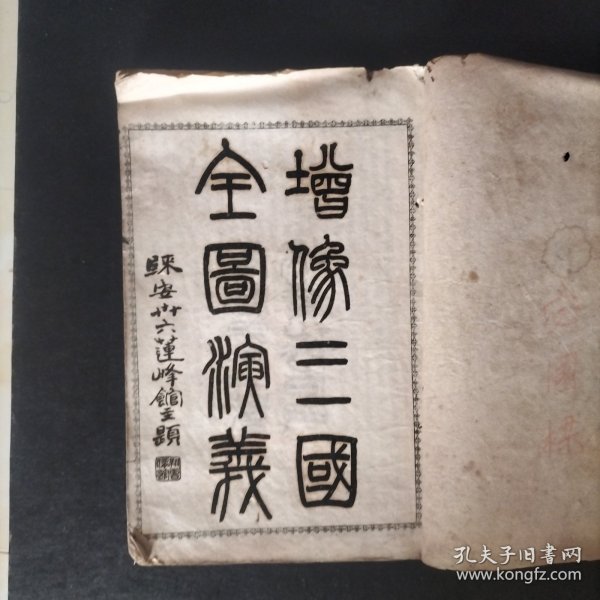 增像三國
全圖演義
六蓮峰館主題
孔夫子旧书网
www.kongfz.com